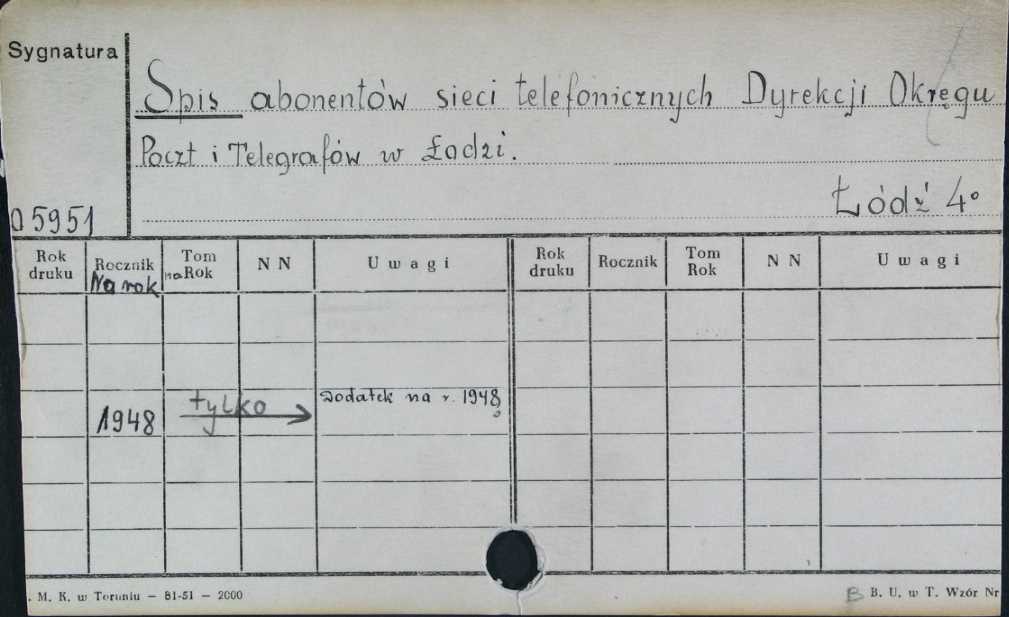 Sygnatura
Spis abonentów sieci telefonicznych Dyrekcji Okręgu
Poczt i Telegrafów w Łodzi.
Łódź 4°
05951
Rok druku Rocznik Na rok Tom na Rok N N U w a g i Rok druku Rocznik Tom Rok N N U w a g i
1948 tylko Dodatek na r. 1948
. M. K. w Toruniu — 81-51 — 2000 B B. U. w T. Wzór Nr